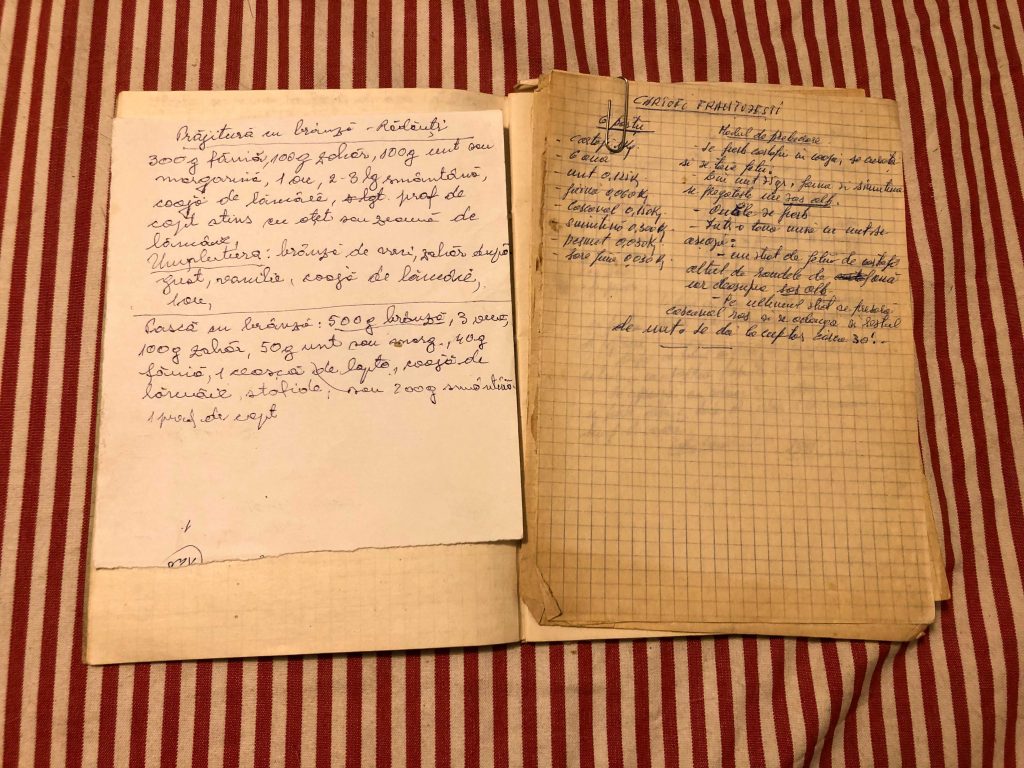 Prăjitură cu brânză - Rădăuți
300g făină, 100g zahăr, 100g unt sau
margarină, 1 ou, 2-3 lg smântână,
coajă de lămâie, 1 lgt. praf de
copt stins cu oțet sau zeamă de
lămâie,
Umplutura: brânză de vaci, zahăr după
gust, vanilie, coajă de lămâie,
1 ou,
Pască cu brânză: 500g brânză, 3 ouă,
100g zahăr, 50g unt sau marg., 40g
făină, 1 ceașcă de lapte, coajă de
lămâie, stafide, sau 200g smântână
1 praf de copt
CARTOFI FRANȚUZEȘTI
6 porții
- cartofi
- 6 ouă
- unt 0,125 Kg
- făină 0,060 Kg
- cașcaval 0,150 Kg
- smântână 0,300 Kg
- pesmet 0,050 Kg
- sare fină 0,030 Kg
Modul de preparare
- Se fierb cartofii în coajă, se curăță
și se taie felii.
- Din unt 75gr, făină și smântână
se pregătește un sos alb.
- Ouăle se fierb
- Într-o tavă unsă cu unt se
așează:
- un strat de felii de cartofi
altul de rondele de ouă
iar deasupra sos alb
- Pe ultimul strat se presară
cașcaval ras și se adaugă și restul
de unt. Se dă la cuptor circa 30'.